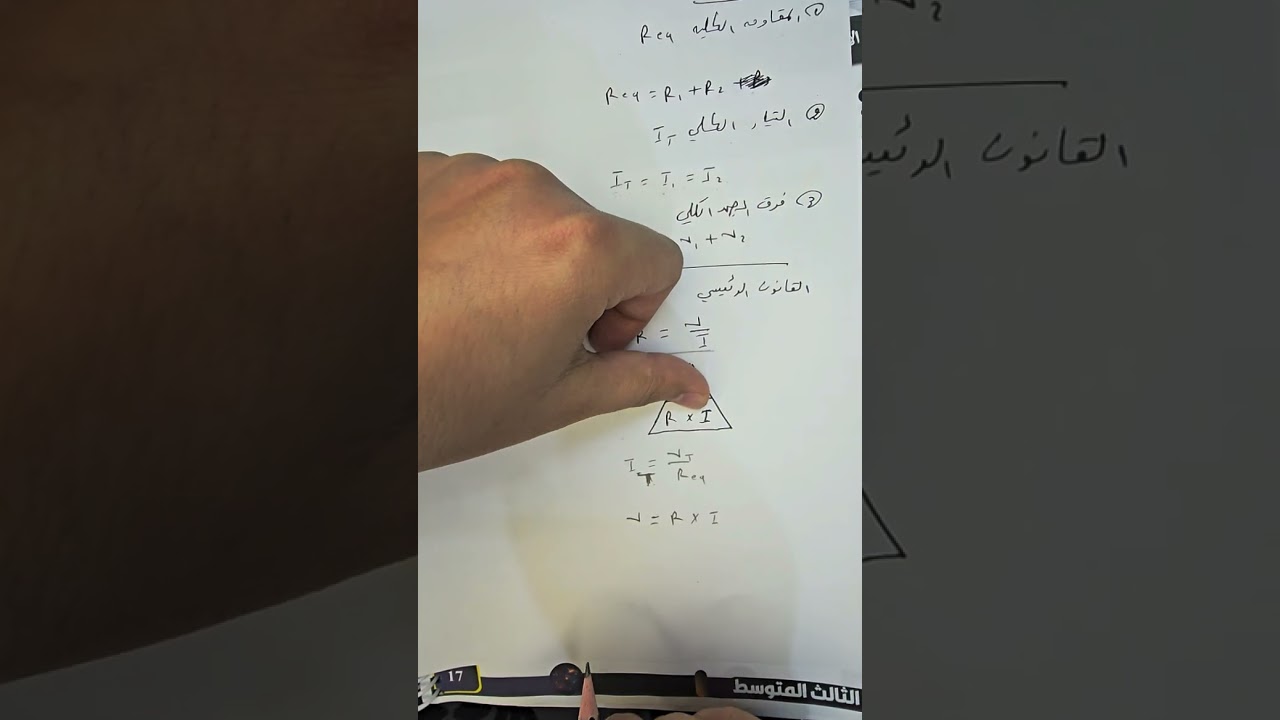 ① المقاومه الكليه Req
Req = R₁ + R₂
② التيار الكلي I_T
I_T = I₁ = I₂
③ فرق الجهد الكلي
V₁ + V₂
القانون الرئيسي
R = V/I
R × I
I_T = V_T/Req
V = R × I
17
الثالث المتوسط